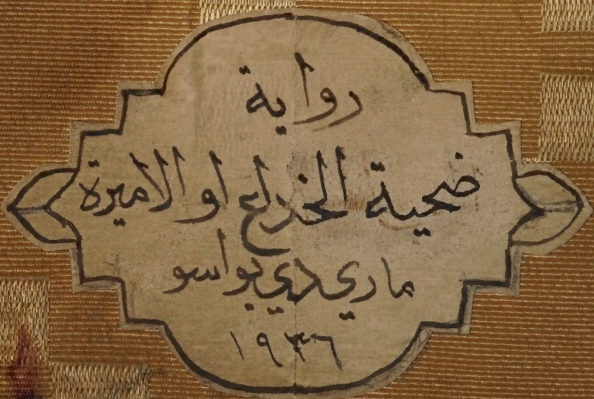 رواية
ضحية الخداع او الاميرة
ماري دي بواسو
١٩٣٦